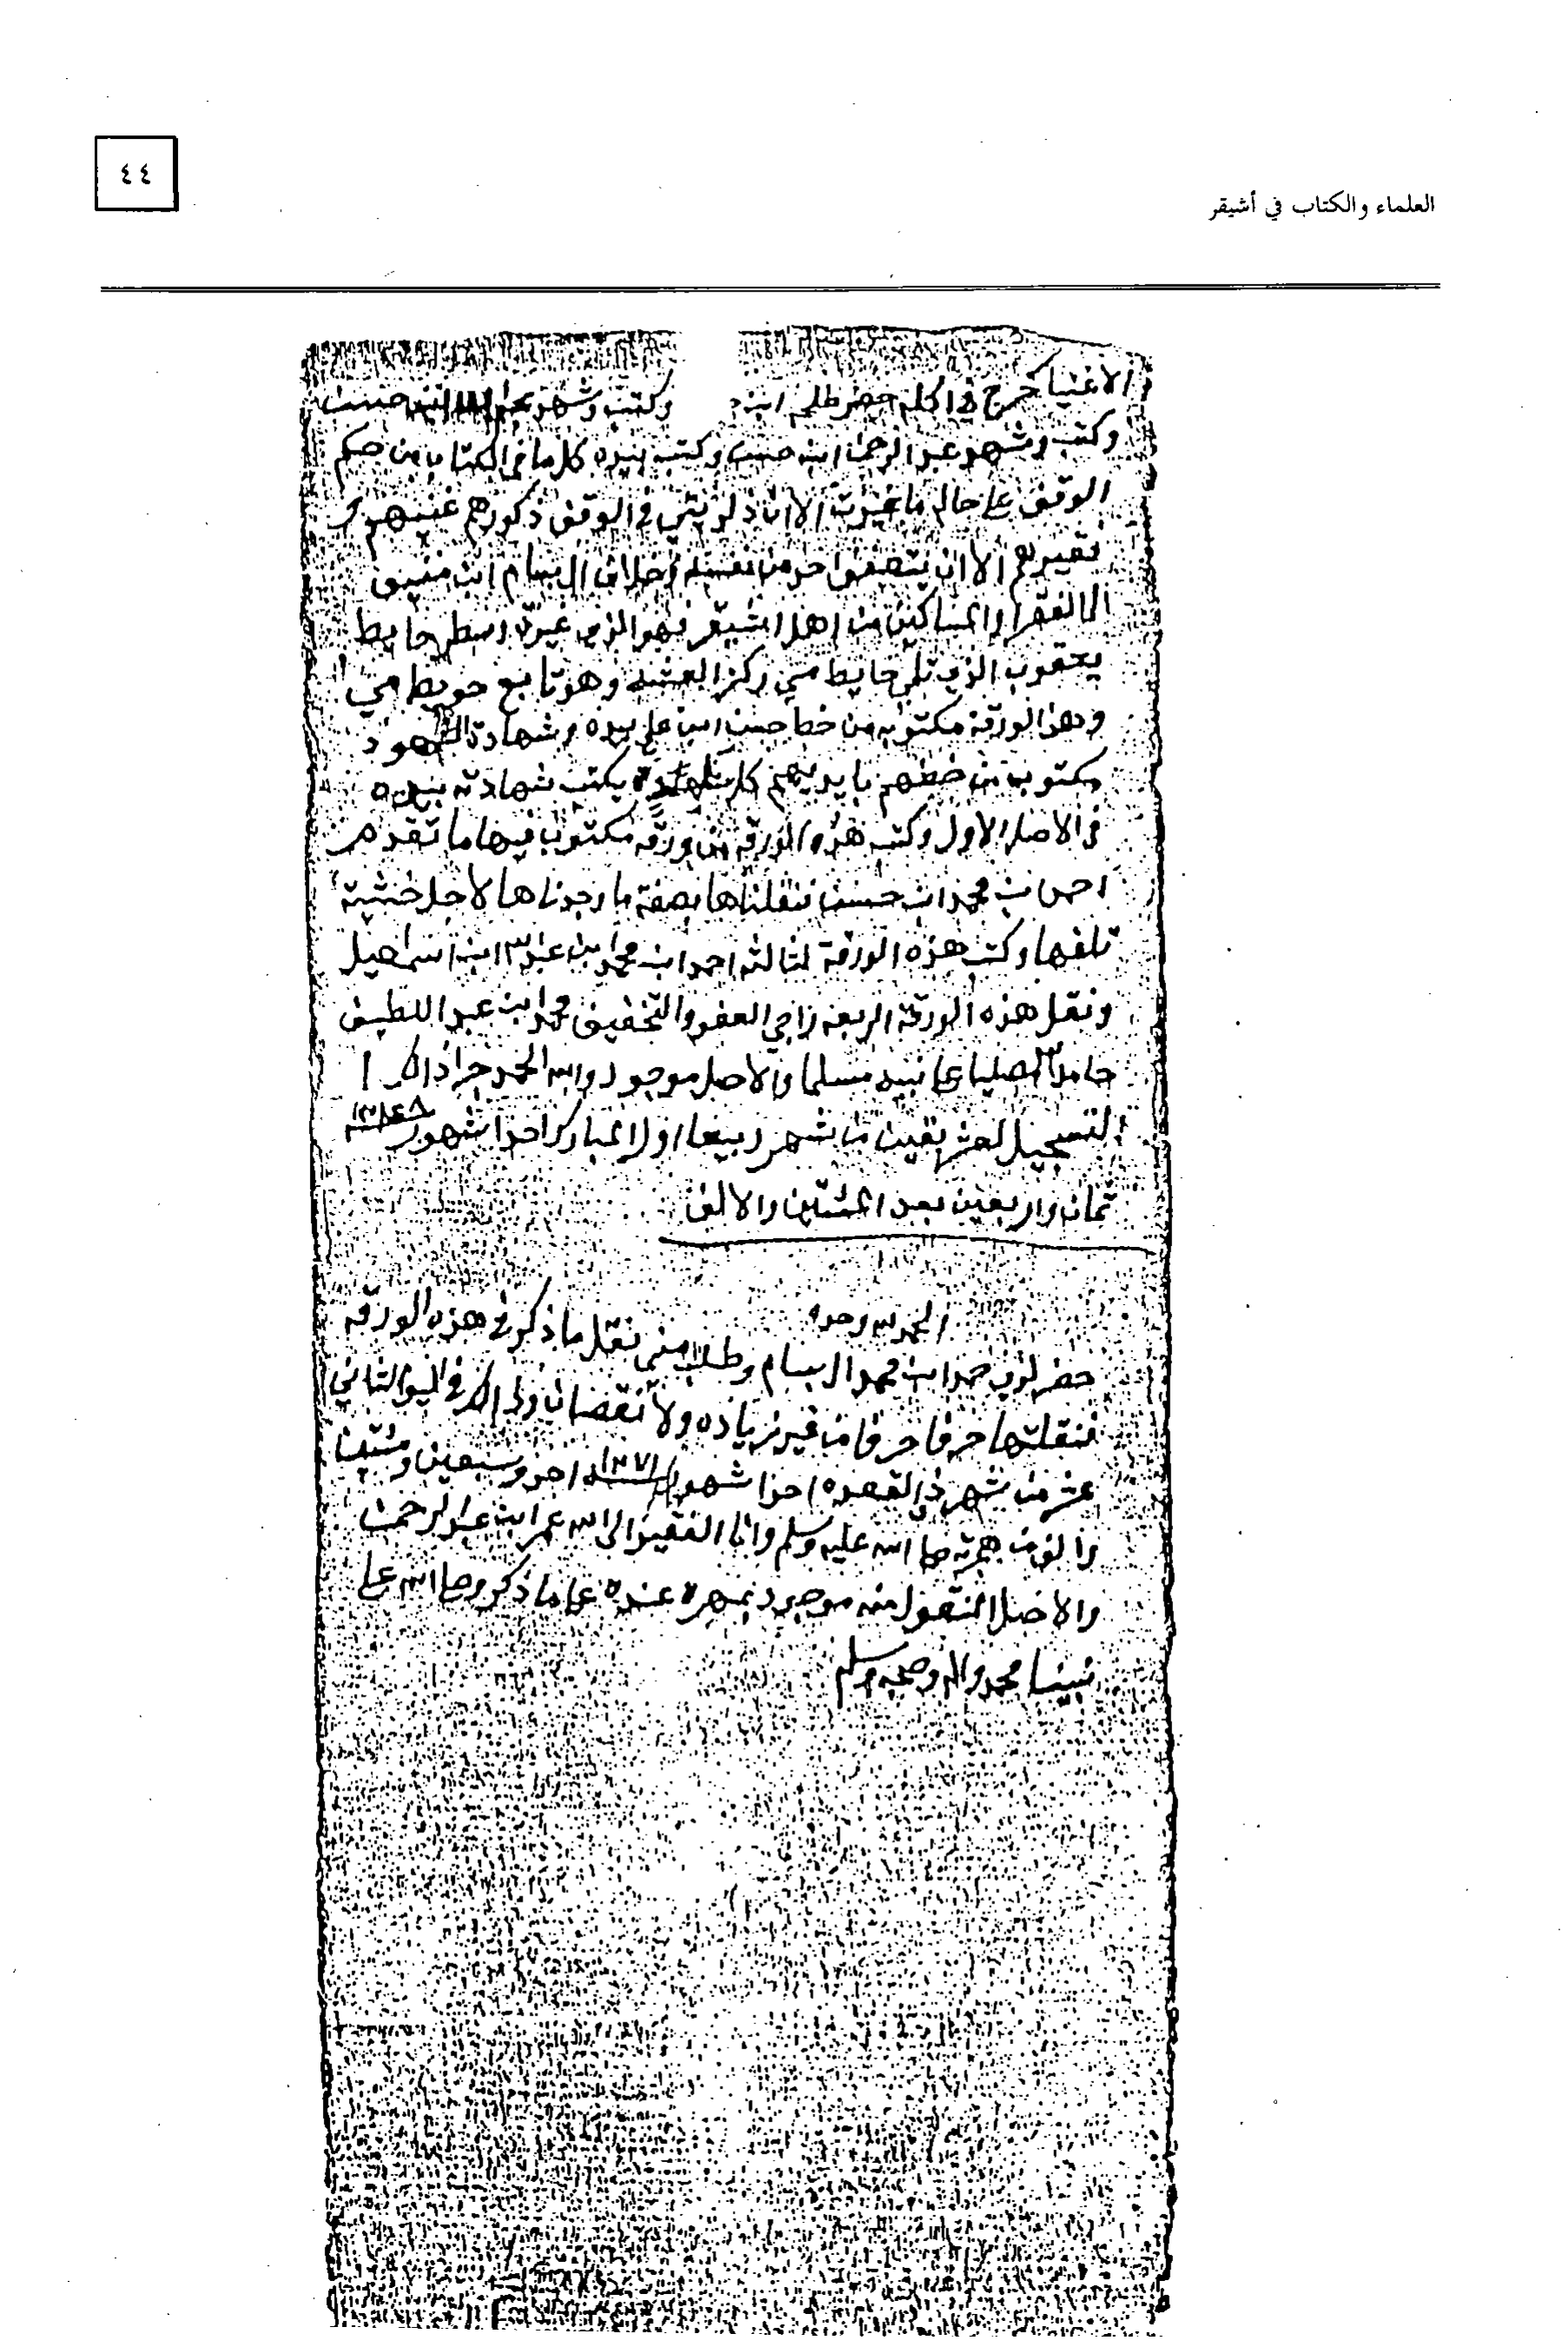 ٤٤
العلماء والكتاب في أشيقر
الاغنيا حرج في اكله حضر طلحه ابن وكتب وشهد حسن
وكتب وشهد عبد الرحمن ابن حسن وكتب بيده كل ما في الكتاب من حكم
الوقف على حاله ما غيرت الا ان ذريتي في الوقف ذكورهم غنيهم و
فقيرهم الا ان يتصف احد من نفسه خلاف ال بسام ابن منيف
الى الفقرا والمساكين من اهل اشيقر فهو الذي غيرت وسطر حايط
يعقوب الذي تلي حايط مي ركز العشه وهو تابع حويط مي
وهذا الورقة مكتوبه من خط حسن ابن علي بيده وشهادة الشهود
مكتوب من خطهم بايديهم كل يكتب شهادته بيده
في الاصل الاول وكتب هذه الورقة من ورقه مكتوب فيها ما تقدم
احمد ابن محمد ابن حسن فنقلناها بصفة ما وجدناها لاجل خشية
تلفها وكتب هذه الورقة لثالثه احمد ابن محمد ابن عبدالله ابن اسماعيل
ونقل هذه الورقة الربعه راجي العفو والتخفيف محمد ابن عبد اللطيف
حامدا لله مصليا على نبيه مسلما والاصل موجود ولله الحمد جرا ذالك
التسجيل لعشر بقين من شهر ربيع اول المبارك احدا شهور ١٢٤٨
ثمان واربعين بعد المئتين والالف
الحمد لله وحده
حضر لدي حمد ابن محمد ال بسام وطلب مني نقل ما ذكر في هذه الورقه
فنقلتها حرفا حرفا من غير زياده ولا نقصان وذالك في اليوم الثاني
عشر من شهر ذي القعده احدا شهور ١٢٧١ احد وسبعين ومئتين
والف من هجرته صلى الله عليه وسلم وانا الفقير الى الله عمر ابن عبد الرحمن
والاصل المنقول منه موجود بمهره عنده على ما ذكر وصلى الله على
نبينا محمد واله وصحبه وسلم